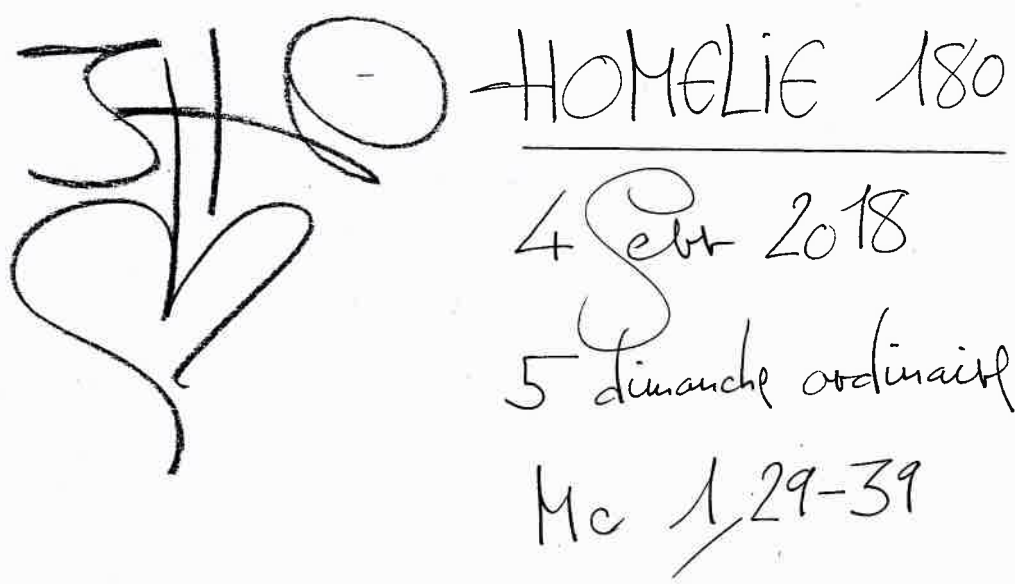 HOMELIE 180
4 Febr 2018
5 dimanche ordinaire
Mc 1,29-39